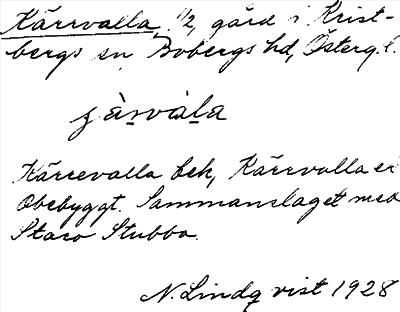 Kärrvalla, 1/2, gård i Krist-
bergs sn, Bobergs hd, Östergl.
Kärrevalla bek, Kärrvalla är
Obebyggt. Sammanslaget med
Stora Stubbo.
N. Lindqvist 1928